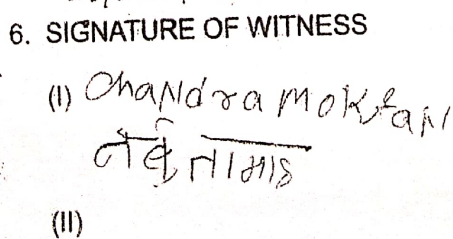 6. SIGNATURE OF WITNESS
(I) Chandra Moktan
तामाङ
(II)